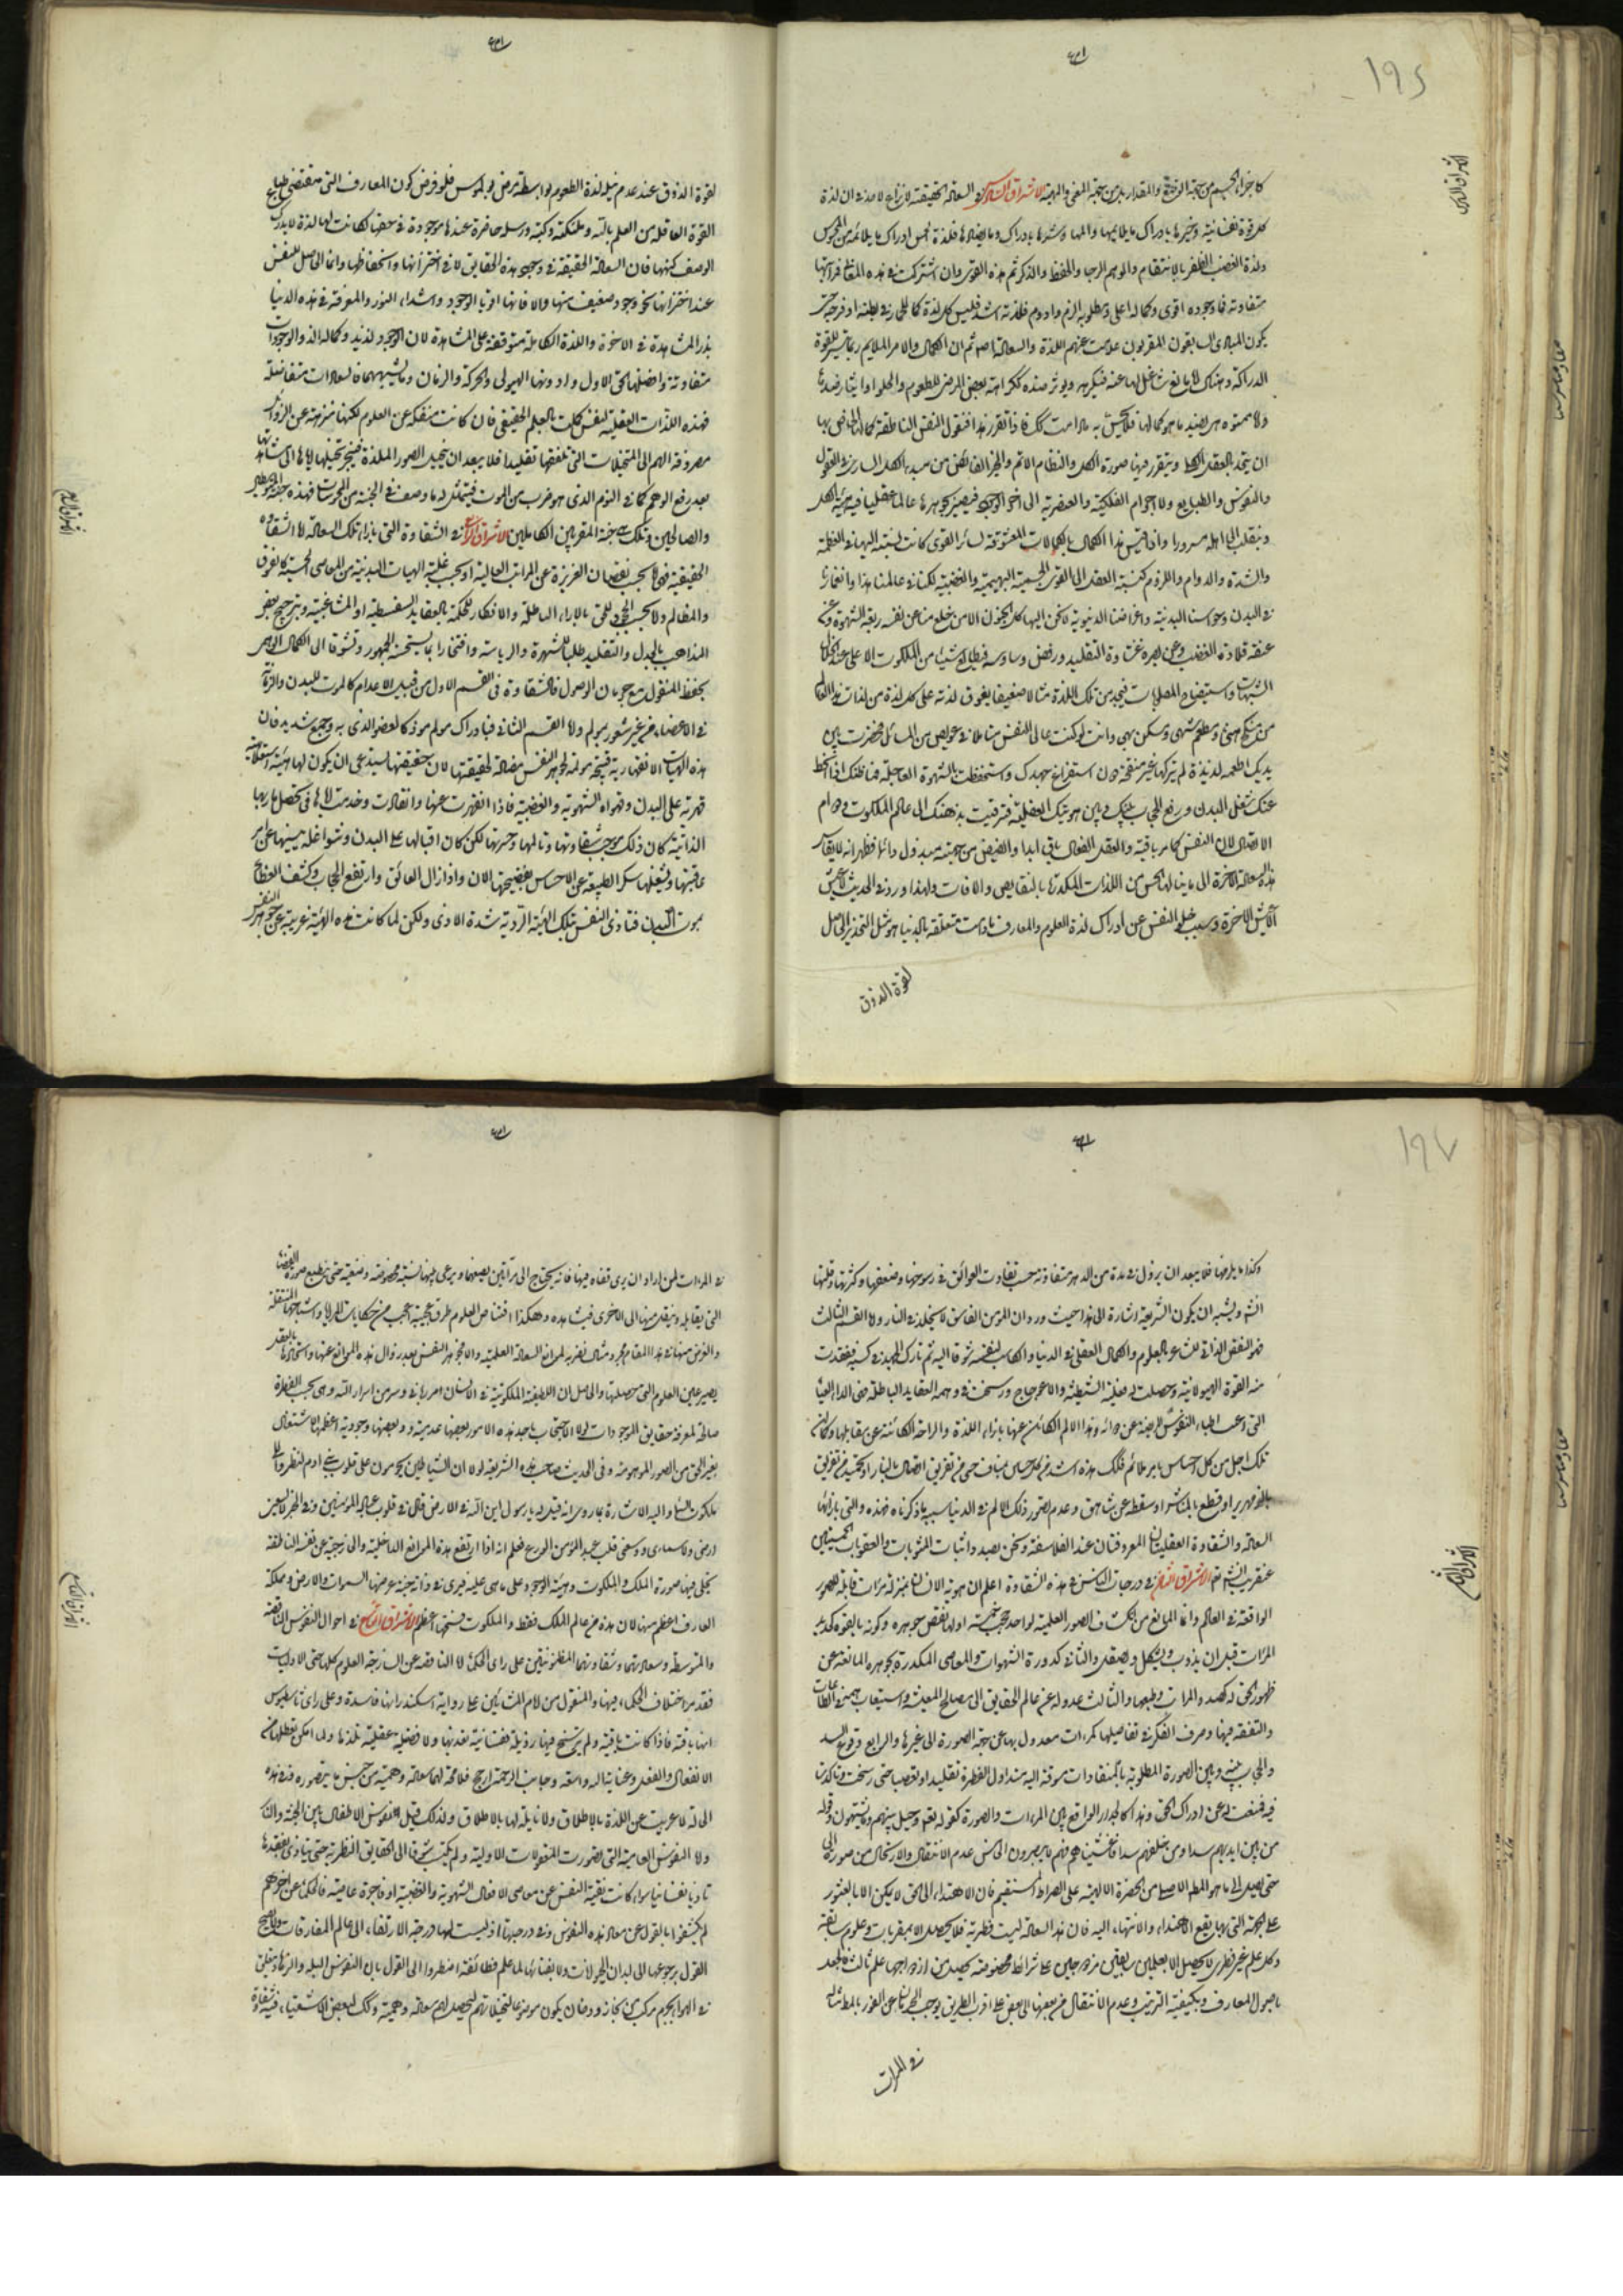 ١٩٥
الاشراق السادس
كل قوة نفسانية وخيرها بادراك ما يلائمها والمها وشرها بادراك ما يضادها فلذة الحس ادراك ما يلائمه من المحسوس
ولذة الغضب الظفر بالانتقام والوهم الرجا والحفظ والذكر ثم هذه القوى وان اشتركت في هذه المعاني فمراتبها
متفاوتة فما وجوده اقوى وكماله اعلى ومطلوبه الزم وادوم فلذته اشد فليس كل لذة كما للحمار في بطنه وفرجه حتى
يكون المبادى السابقون المقربون عدمت عنهم اللذة والسعادة ثم ان الكمال والامر الملايم ربما تيسر للقوة
الدراكة وهناك مانع شاغل لها عنه فتكرهه ويوثر ضده ككراهة بعض المرضى للطعوم والحلو
ان يتحد بالعقل الكلى ويتقرر فيها صورة الكل والنظام الاتم والخير الفائض من مبدء الكل السارى في العقول
والنفوس والطبايع والاجرام الفلكية والعنصرية الى اخر الوجود فيصير بجوهرها عالما عقليا فيه هيئة الكل
وينقلب الى اهله مسرورا واذا قيس هذا الكمال بالكمالات المعشوقة لسائر القوى كانت نسبته اليها في العظمة
والشدة والدوام واللزوم كنسبة العقل الى القوى الحسية البهيمية والغضبية لكنا في عالمنا هذا وانغمارنا
في البدن وحواسنا البدنية واغراضنا الدنيوية لا نحن اليها كل الحنين الا من خلع منا عن نفسه ربقة الشهوة وعن
عنقه قلادة الغضب وعن بصره غشاوة التقليد ورفض وساوسه فيطالع شيئا من الملكوت الاعلى عند انحلال
الشبهات واستيضاح المطلوبات فيجد من تلك اللذة مثالا ضعيفا يفوق لذته على كل لذة من لذات هذا العالم
من منكح هنى ومطعم شهى ومسكن بهى وانت لو كنت عالى النفس متاملا في عويص من المسائل فحضرت بين
يديك اطعمة لذيذة لم تتركها غير منقحة دون استفراغ جهدك واستخفضت الشهوة العاجلة فما ظنك اذا انحط
عنك شغل البدن ورفع الحجاب بينك وبين هويتك العقلية فترقيت بذهنك الى عالم الملكوت ودوام
الاتصال لان النفس كما مر باقية والعقل الفعال باق ابدا والفيض من جهته مبذول دائما فظهر انه لا يقاس
هذه سعادة الآخرة الى ما ينالها الحس من اللذات المكدرة بالنقايص والافات ولهذا ورد في الحديث لا عيش
الا عيش الآخرة وسبب خلو النفس عن ادراك لذة العلوم والمعارف ما دامت متعلقة بالدنيا هو مثل التخدير الحاصل
لقوة الذوق
لقوة الذوق عند عدم نيله لذة الطعوم بواسطة مرض بوليموس فلو فرض كون المعارف التى مقتضى طباع
القوة العاقلة من العلم بالله وملئكته وكتبه ورسله حاضرة عندها موجودة في حضها لكانت لها لذة لا يدرك
الوصف كنهها فان السعادة الحقيقية في وجود هذه الحقايق لا في اختزانها وانحفاظها وانما الحاصل للنفس
عند اختزانها نحو وجود ضعيف منها والا فانها اقوى الوجود واشد النور والمعرفة في هذه الدنيا
بذر المشاهدة في الاخرة واللذة الكاملة متوقفة على المشاهدة لان الوجود لذيذ وكماله الذ والوجودات
متفاوتة وافضلها الحق الاول وادونها الهيولى والحركة والزمان وما يشبههما فالسعادات متفاضلة
فهذه اللذات العقلية لنفس كملت بالعلم الحقيقى فان كانت منفكة عن العلوم لكنها منزهة عن الرذائل
مصروفة الهم الى المتخيلات التى تلقفها تقليدا فلا يبعد ان يتخيل الصور الملذة فينجر تخيلها اياها الى مشاهدتها
بعد رفع الوهم كما في النوم الذى هو ضرب من الموت فيتمثل له ما وصف في الجنة من المحسوسات فهذه جنة المتوسطين
والصالحين وتلك جنة المقربين الكاملين الاشراق السابع في الشقاوة التى بازاء تلك السعادة اما الشقاوة
الحقيقية فهى اما بحسب نقصان الغريزة عن المراتب العالية او بحسب غلبة الهيات البدنية من المعاصى الحسية كالفسوق
والمظالم واما بحسب الجحود للحق بالاراء الباطلة والانكار للحكمة بالعقايد السفسطية او المشاغبية وبترجيح بعض
المذاهب بالجدل والتقليد طلبا للشهرة والرياسة وافتخارا بما يستحسنه الجمهور وتشوقا الى الكمال الوهمى
بحفظ المنقول مع حرمان الوصول فالشقاوة فى القسم الاول من قبيل الاعدام كالموت للبدن والزمانة
في الاعضاء من غير شعور بمولم واما القسم الثانى فبادراك مولم موذ كالعضو الذى به وجع شديد فان
هذه الهيات الانقهارية قبيحة مولمة لجوهر النفس مضادة لحقيقتها لان حقيقتها يستدعى ان يكون لها هيئة استعلائية
قهرية على البدن وقواه الشهوية والغضبية فاذا انقهرت عنها وانقادت وخدمت اياها في تحصيل ماربها
الذاتية كان ذلك موجب شقاوتها وتالمها وحسرتها لكن كان اقبالها على البدن وشواغله ينسيها عن امر
عاقبتها ويشغلها سكر الطبيعة عن الاحساس بفضيحتها الان واذا زال العائق وارتفع الحجاب وكشف الغطاء
بموت البدن فتاذى النفس بتلك الهيئة الردية شدة الاذى ولكن لما كانت هذه الهيئة غريبة عن جوهر النفس
الاشراق السابع
١٩٦
وكذا ما يلزمها فلا يبعد ان يزول في مدة من الدهر متفاوتة حسب تفاوت العوائق في رسوخها وضعفها وكثرتها وقلتها
انشاء ويشبه ان يكون الشريعة اشارة الى هذا حيث ورد ان المؤمن الفاسق لا يخلد في النار واما القسم الثالث
فهو النقص الذاتى للشاعر بالعلوم والكمال العقلى في الدنيا والكاسب لنفسه شوقا اليه ثم تارك الجهد في كسبه ففقدت
منه القوة الهيولانية وحصلت له فعلية الشيطنة والاعوجاج ورسخت في وهمه العقايد الباطلة فهى الداء العياء
التى اعيت اطباء النفوس المريضة عن دوائه وهذا الالم الكائن عنها بازاء اللذة والراحة الكائنة عن مقابلها وكما ان
تلك اجل من كل احساس بامر ملائم فكذلك هذه اشد من كل احساس بمناف حسى من تفريق اتصال بالنار او تجميد من تفريق
بالزمهرير او قطع بالمنشار او سقطة عن شاهق وعدم تصور ذلك الالم في الدنيا سببه ما ذكرناه فهذه والتى بازائها
السعادة والشقاوة العقليتان المعروفتان عند الفلاسفة ونحن بصدد اثبات المثوبات والعقوبات الحسيتين
عنقريب انشاء الله الاشراق الثامن في درجات الناس في هذه الشقاوة اعلم ان هوية الانسان بمنزلة مرآت قابلة للصور
الواقعة في العالم وانما المانع من انكشاف الصور العلمية لواحد حجب خمسة اولها نقص جوهره وكونه بالقوة كحديد
المرآت قبل ان يذوب ويشكل ويصقل والثانى كدورة الشهوات والمعاصى المكدرة بجوهره المانعة عن
ظهور الحق له كصدء المرآت وطبعها والثالث عدوله عن عالم الحقايق الى مصالح المعيشة واستيعاب همه في الطاعات
والتفقه فيها وصرف الفكر في تفاصيلها كمرآت معدول بها عن جهة الصورة الى غيرها والرابع وقوع السد
والحجاب بينه وبين الصورة المطلوبة باعتقادات موقنة اليه منذ اول الفطرة تقليدا او تعصبا حتى رسخت وتاكدت
فيه فمنعت له عن ادراك الحق وهذا كالجدار الواقع بين المرآت والصورة كقوله تعالى وحيل بينهم وبين ما يشتهون وقوله
من بين ايديهم سدا ومن خلفهم سدا فاغشيناهم فهم لا يبصرون الخامس عدم الانتقال والارتحال من صورة الى
حتى يصل الى ما هو المطلب الاصلى من الحضرة الالهية على الصراط المستقيم فان الاهتداء الى الحق لا يمكن الا بالعثور
على الجهة التى بها يقع الاهتداء والانتهاء اليه فان هذه السعادة ليست فطرية فلا يحصل الا بمقربات وعلوم سابقة
وكل علم غير فطرى لا يحصل الا بعلمين سابقين مزدوجين على شرائط مخصوصة يحصل من ازدواجهما علم ثالث فالجهل
باصول المعارف وبكيفية الترتيب وعدم الانتقال من بعضها الى بعض على اقرب الطريق يوجب الحرمان عن الفوز بالمطالب
في المرآت
الاشراق الثامن
في المرآت لمن اراد ان يرى قفاه فيها فانه يحتاج الى مرآتين يضعهما ويرعى بينهما نسبة مخصوصة وضعية حتى ينطبع صورة القفا
التى يقابله وينقل منها الى الاخرى فيشاهده وهكذا اقتناص العلوم طرق عجيبة اعجب من حكايات المرايا واشباحها المنتقلة
والغرض منها في هذا المقام مجرد مثال نضربه لموانع السعادة العلمية والا فجوهر النفس بعد زوال هذه الموانع عنها واستكمالها بالعقل
يصير عين العلوم التى حصلتها والحاصل ان اللطيفة الملكوتية في الانسان امر ربانى وسر من اسرار الله وهى بحسب الفطرة
صالحة لمعرفة حقايق الموجودات لولا الاحتجاب باحد هذه الامور بعضها عدمية وبعضها وجودية اعظمها الاشتغال
بغير الحق من الصور الموهومة وفى الحديث صاحب هذه الشريعة لولا ان الشياطين يحومون على قلوب بنى ادم لنظروا الى
ملكوت السماء واليه الاشارة بما روى انه قيل له يا رسول الله اين الله في الارض قال في قلوب عباده المؤمنين وفى الخبر لا يسعنى
ارضى ولا سمائى ووسعنى قلب عبدى المؤمن الورع فعلم انه اذا ارتفع هذه الموانع الداخلية والخارجية عن نفسه الناطقة
تجلى فيها صورة الملك والملكوت وهيئة الوجود على ما هى عليه فيرى في ذاته جنة عرضها السموات والارض ومملكة
العارف اعظم منها لان هذه من عالم الملك فقط والملكوت فسحتها اعظم الاشراق التاسع في احوال النفوس الناقصة
والمتوسطة وسعادتهما وشقاوتهما المظنونتين على راى الحكماء اما الناقصة عن السازجة العلوم كلها حتى الاوليات
فقد مر اختلاف الحكماء فيها والمنقول من امام المشائين على رواية اسكندر انها فاسدة وعلى راى ثامسطيوس
انها باقية فاذا كانت باقية ولم يترسخ فيها رذيلة نفسانية تعذبها ولا فضيلة عقلية تلذها ولا امكن تعطلها من
الانفعال والفعل وعناية الله واسعة وجانب الرحمة ارجح فلا محالة لها سعادة وهمية من جنس ما يتصوره وفى هذه
الحالة لا عريت عن اللذة بالاطلاق ولا نايلة لها بالاطلاق ولذلك قيل نفوس الاطفال بين الجنة والنار
واما النفوس العامية التى تصورت المعقولات الاولية ولم يكتسب شوقا الى الحقايق النظرية حتى يتاذى بفقدها
تاذيا نفسانيا سواء كانت نقية النفس عن معاصى الافعال الشهوية والغضبية او فاجرة عاصية فالحكماء عن اخرهم
لم يكشفوا بالقول عن معاد هذه النفوس وفى درجتها اذ ليست لها درجة الارتقاء الى عالم المفارقات ولا يصح
القول برجوعها الى ابدان الحيوانات ولا بفنائها لما علم فطائفة اضطروا الى القول بان النفوس البله والزهاد يتعلق
الاشراق التاسع